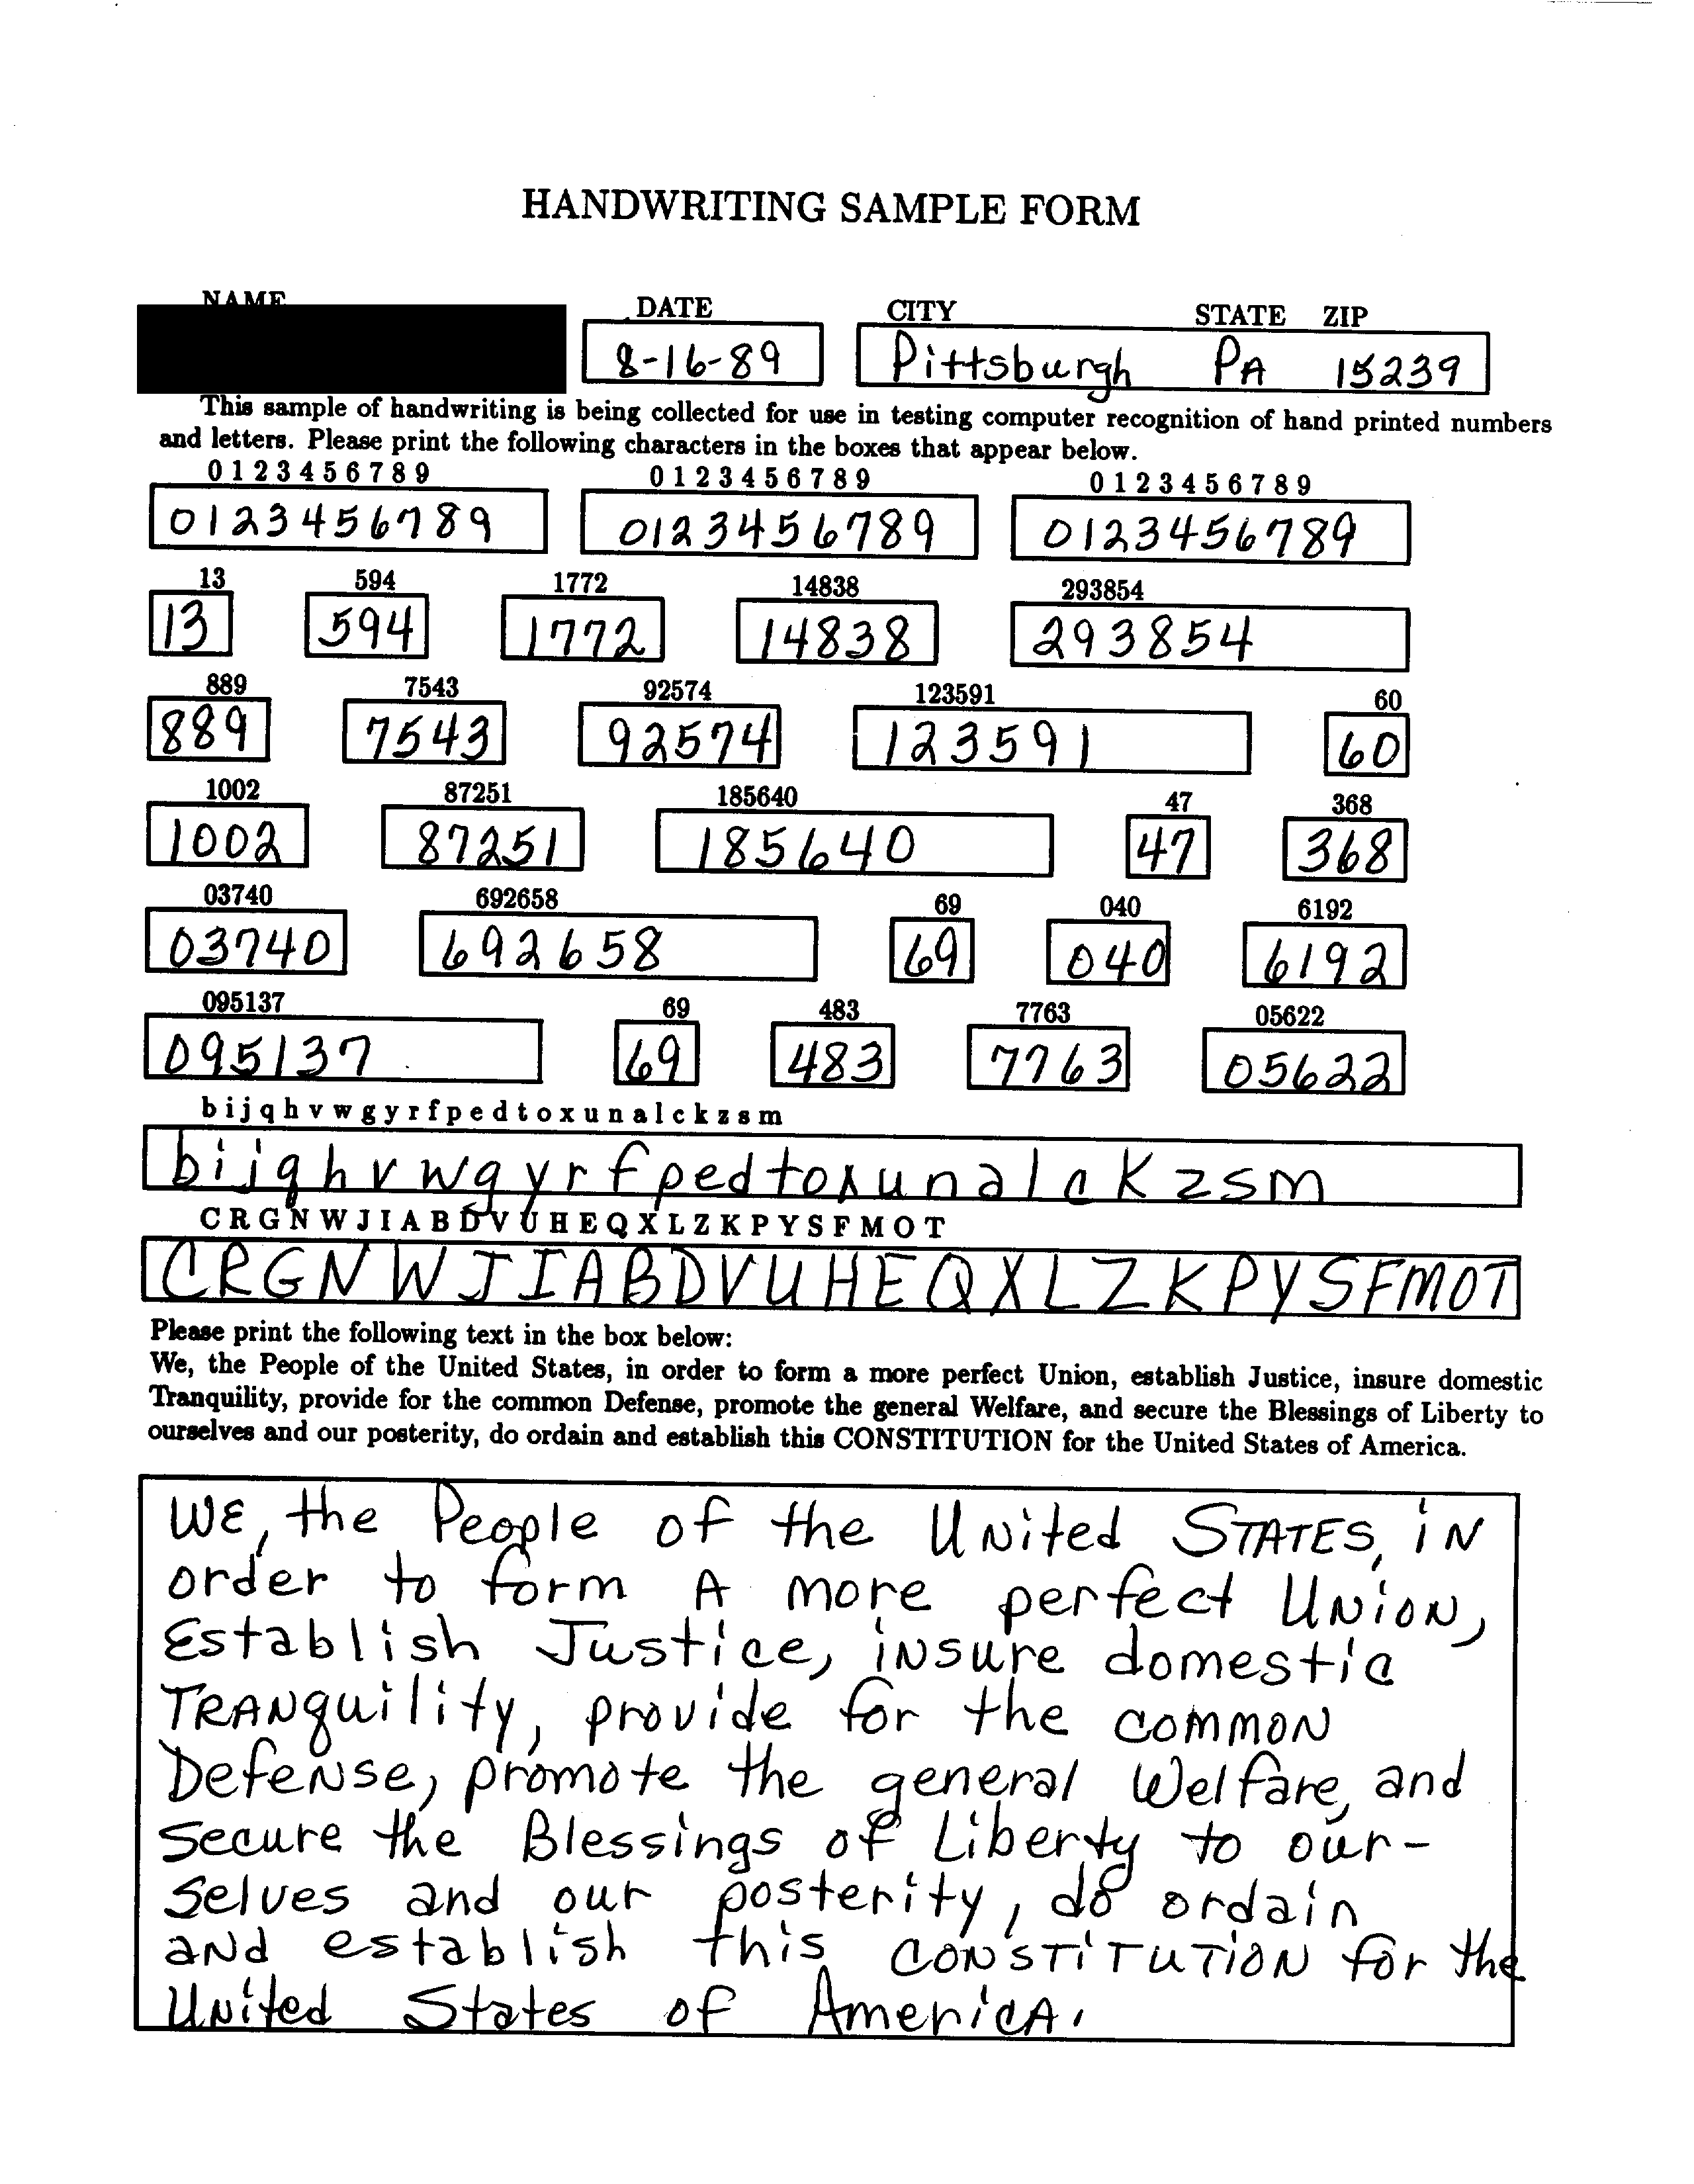 HANDWRITING SAMPLE FORM
NAME DATE CITY STATE ZIP
8-16-89 Pittsburgh PA 15239
This sample of handwriting is being collected for use in testing computer recognition of hand printed numbers
and letters. Please print the following characters in the boxes that appear below.
0 1 2 3 4 5 6 7 8 9 0 1 2 3 4 5 6 7 8 9 0 1 2 3 4 5 6 7 8 9
0123456789 0123456789 0123456789
13 594 1772 14838 293854
13 594 1772 14838 293854
889 7543 92574 123591 60
889 7543 92574 123591 60
1002 87251 185640 47 368
1002 87251 185640 47 368
03740 692658 69 040 6192
03740 692658 69 040 6192
095137 69 483 7763 05622
095137 69 483 7763 05622
b i j q h v w g y r f p e d t o x u n a l c k z s m
b i j q h v w g y r f p e d t o x u n a l c K z s m
C R G N W J I A B D V U H E Q X L Z K P Y S F M O T
C R G N W J I A B D V U H E Q X L Z K P Y S F M O T
Please print the following text in the box below:
We, the People of the United States, in order to form a more perfect Union, establish Justice, insure domestic
Tranquility, provide for the common Defense, promote the general Welfare, and secure the Blessings of Liberty to
ourselves and our posterity, do ordain and establish this CONSTITUTION for the United States of America.
WE, the People of the UNited STATES, iN
order to form A more perfect UNiON,
Establish Justice, iNsure domestic
TRANquility, provide for the commoN
DefeNse, promote the general Welfare, and
Secure the Blessings of Liberty to our-
Selves and our posterity, do ordain
aNd establish this CONSTiTUTiON for the
UNited States of AmericA.